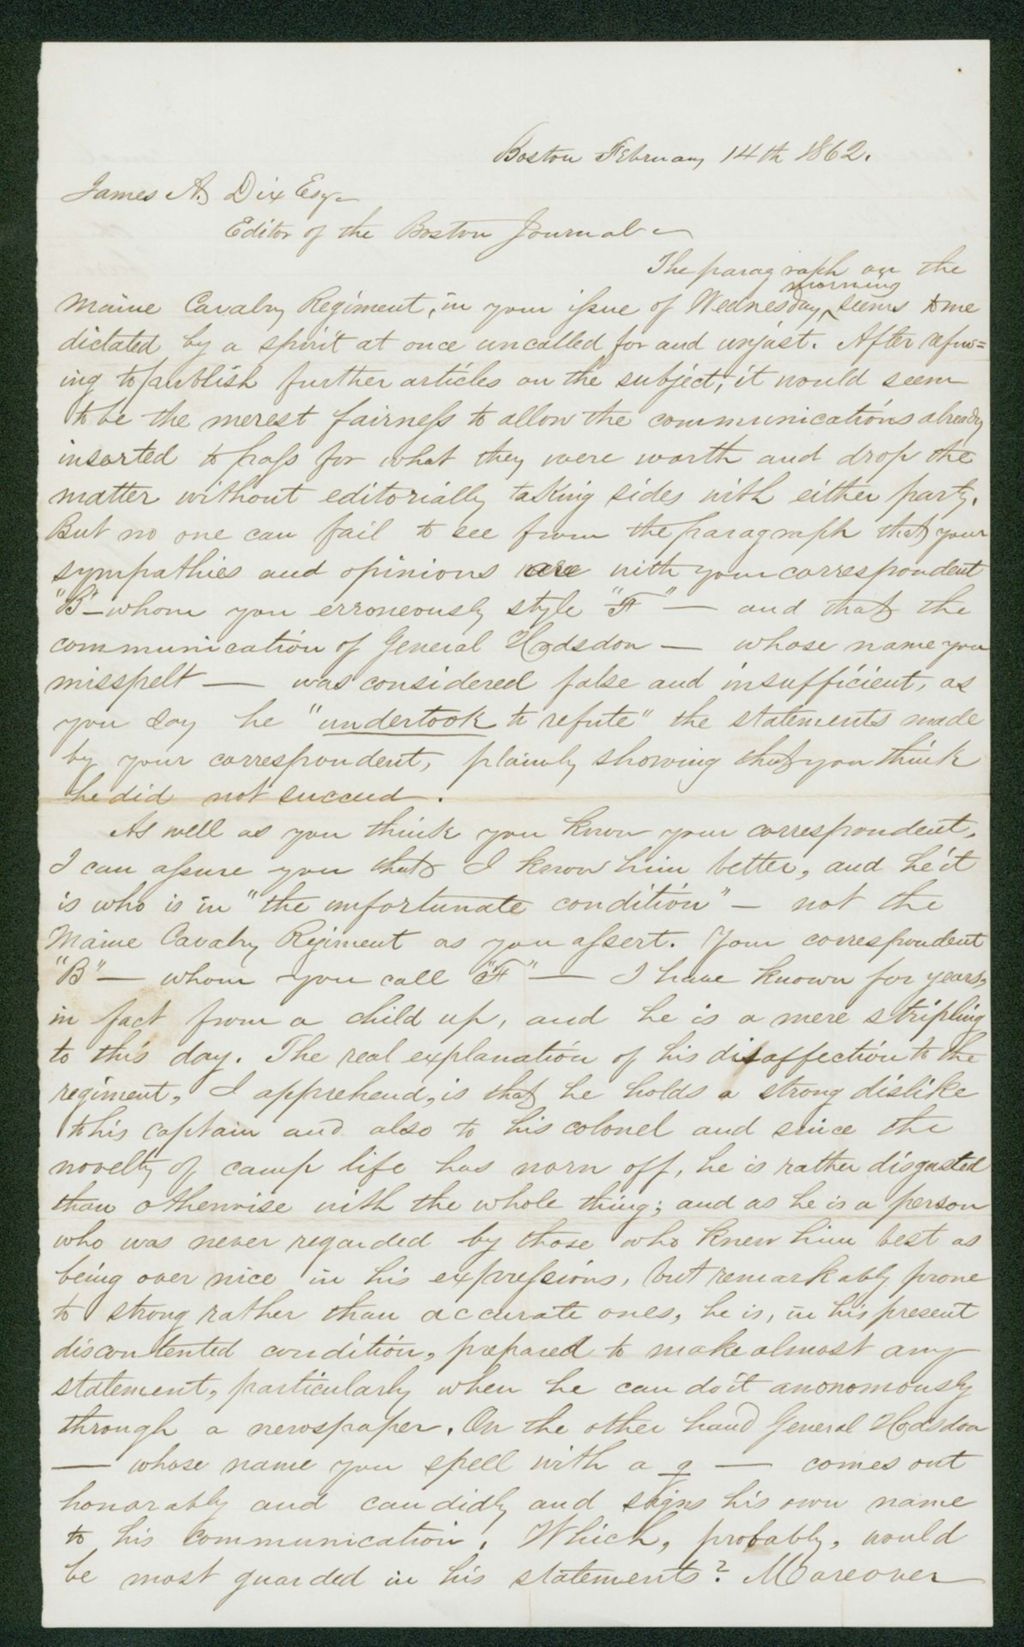 Boston February 14th 1862.
James A. Dix Esq.
Editor of the Boston Journal
The paragraph on the
morning
Maine Cavalry Regiment, in your issue of Wednesday, seems to me
dictated by a spirit at once uncalled for and unjust. After refus=
ing to publish further articles on the subject, it would seem
to be the merest fairness to allow the communications already
inserted to pass for what they were worth and drop the
matter without editorially taking sides with either party.
But no one can fail to see from the paragraph that your
sympathies and opinions are with your correspondent
"B"—whom you erroneously style "F" — and that the
communication of General Hodsdon — whose name you
misspelt — was considered false and insufficient, as
you say he "undertook to refute" the statements made
by your correspondent, plainly showing that you think
he did not succeed.
As well as you think you know your correspondent,
I can assure you that I know him better, and he it
is who is in "the unfortunate condition" — not the
Maine Cavalry Regiment as you assert. Your correspondent
"B" — whom you call "F" — I have known for years,
in fact from a child up, and he is a mere stripling
to this day. The real explanation of his disaffection to the
regiment, I apprehend, is that he holds a strong dislike
to his captain and also to his colonel and since the
novelty of camp life has worn off, he is rather disgusted
than otherwise with the whole thing; and as he is a person
who was never regarded by those who knew him best as
being over nice in his expressions, but remarkably prone
to strong rather than accurate ones, he is, in his present
discontented condition, prepared to make almost any
statement, particularly when he can do it anonomously
through a newspaper. On the other hand General Hodsdon
— whose name you spell with a g — comes out
honorably and candidly and signs his own name
to his communication. Which, probably, would
be most guarded in his statements? Moreover